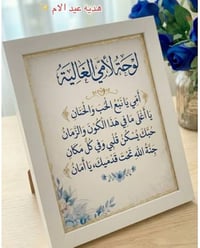 هديه عيد الام
لوحة لأمي الغالية
أمي يا نبع الحب والحنان
يا أغلى ما في هذا الكون والزمان
حبك يسكن قلبي وفي كل مكان
جنة الله تحت قدميك، يا أمان